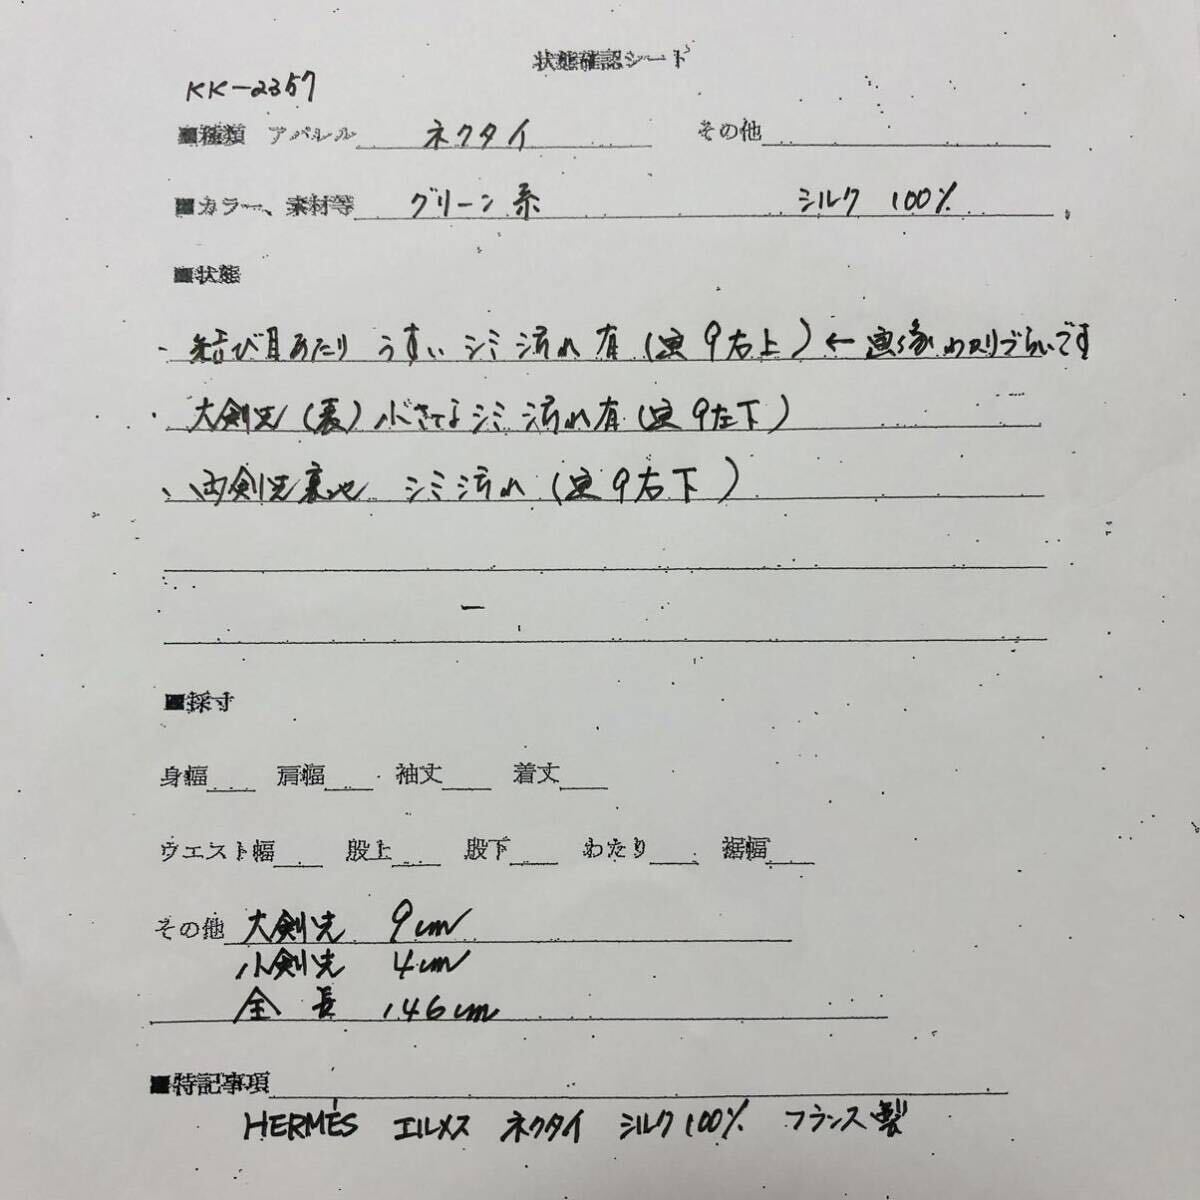 状態確認シート
KK-2357
■種類 アパレル ネクタイ その他
■カラー、素材等 グリーン系 シルク 100%
■状態
・結び目あたり うすい シミ 汚れ 有 (画9右上) ← 画像わかりづらいです
・大剣先 (裏) 小さなシミ 汚れ有 (画9左下)
・両剣先裏地 シミ汚れ (画9右下)
■採寸
身幅 肩幅 袖丈 着丈
ウエスト幅 股上 股下 わたり 裾幅
その他 大剣先 9cm
小剣先 4cm
全長 146cm
■特記事項
HERMÈS エルメス ネクタイ シルク100% フランス製